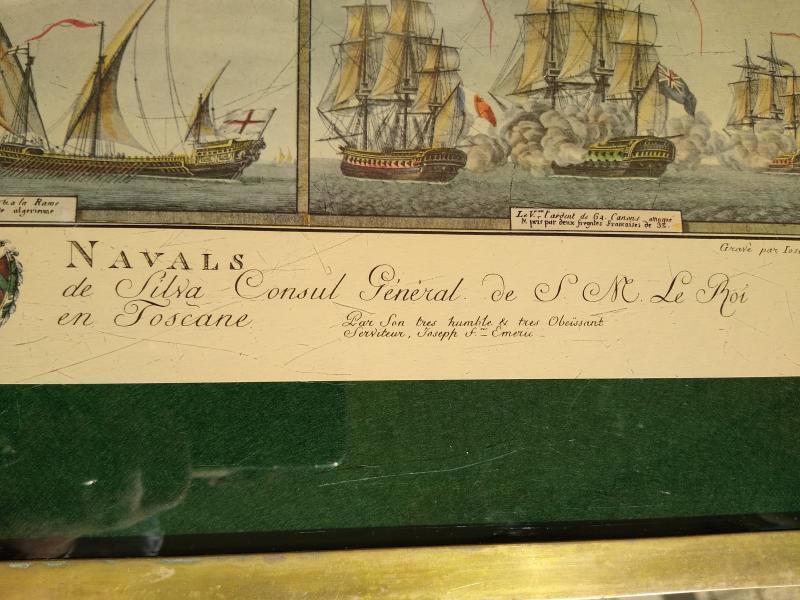 a la Rame
algerienne
Le V.au l'ardent de 64. Canons attaqué
& pris par deux fregates Francaises de 32.
Gravé par Jos
NAVALS
de Silva Consul Général de S M. Le Roi
en Toscane
Par Son tres humble & tres Obeissant
Serviteur, Joseph F.ois Emeric